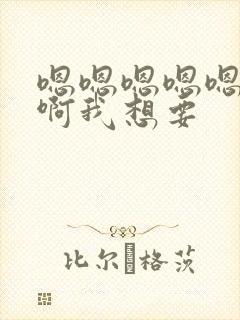 嗯嗯嗯嗯嗯
啊我想要
比尔·格茨